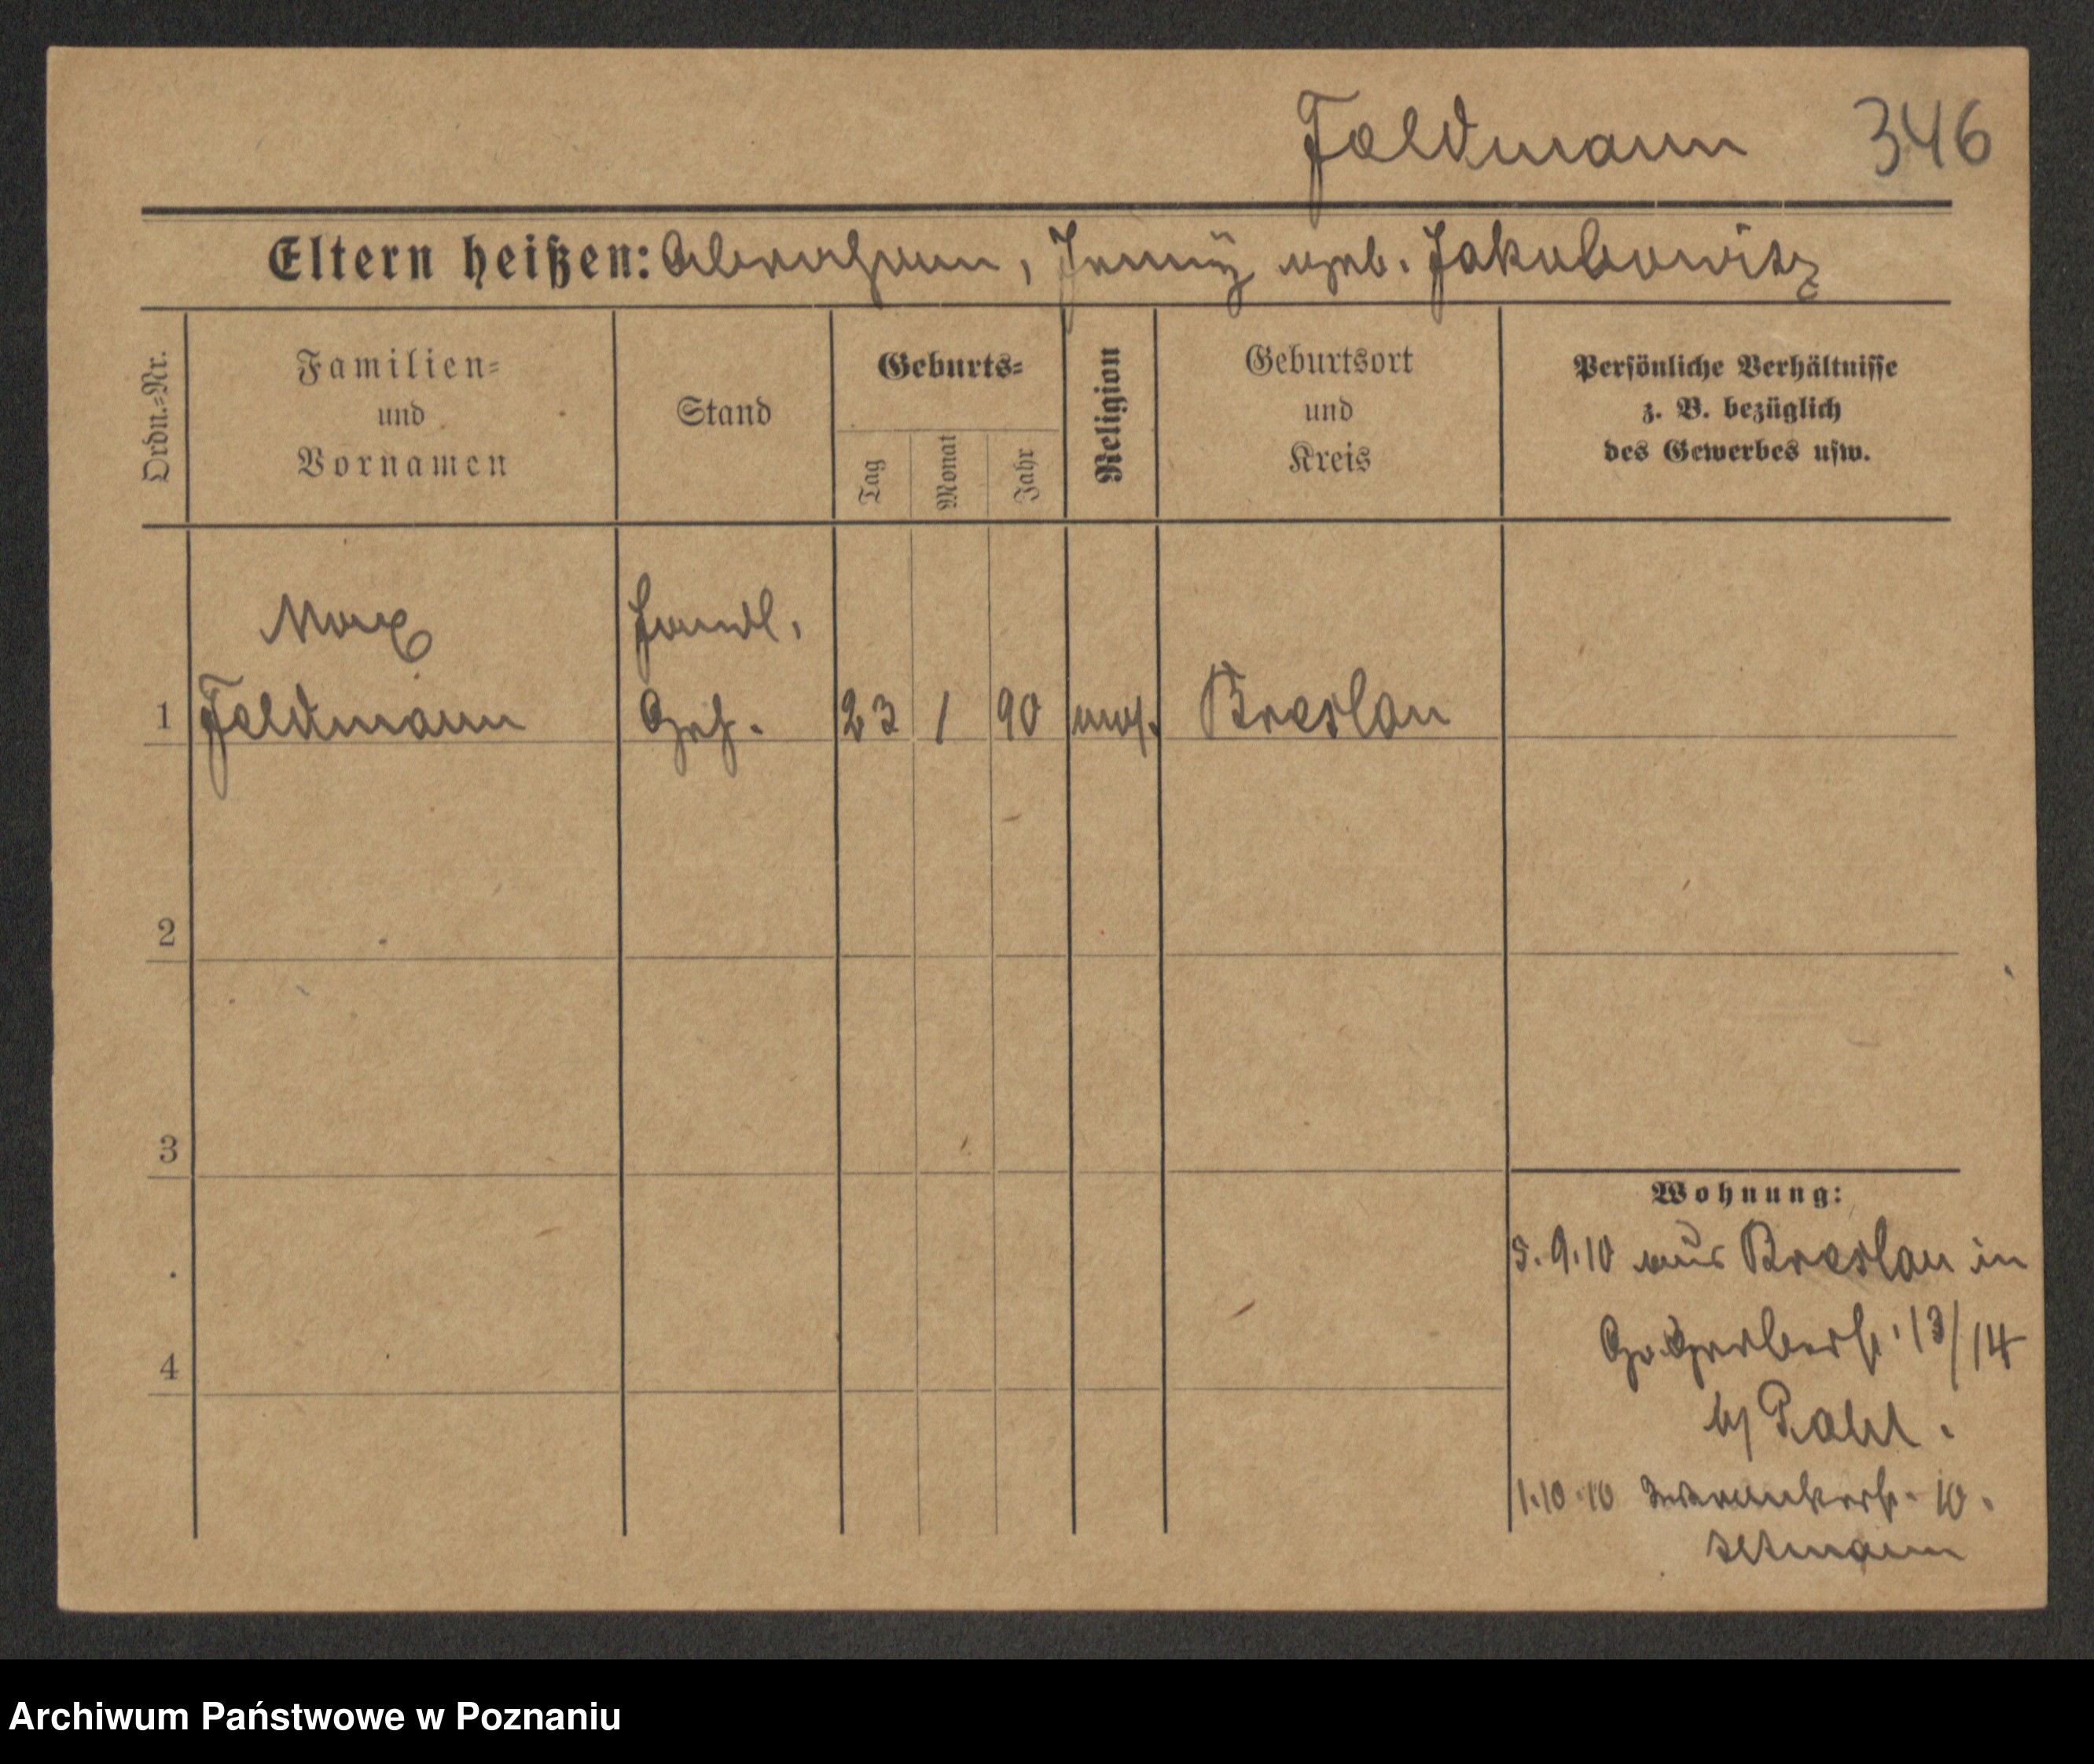 Feldmann 346
Eltern heißen: Abraham, Jenny geb. Jakubowitz
Ordn.-Nr.
Familien-
und
Vornamen
Stand
Geburts-
Tag
Monat
Jahr
Religion
Geburtsort
und
Kreis
Persönliche Verhältnisse
z. B. bezüglich
des Gewerbes usw.
Max Handl.
1 Feldmann Geh. 23 1 90 mos. Breslau
2
3
Wohnung:
5.9.10 aus Breslau in
Gr. Gerberstr. 13/14
4
b/
1.10.10 10.